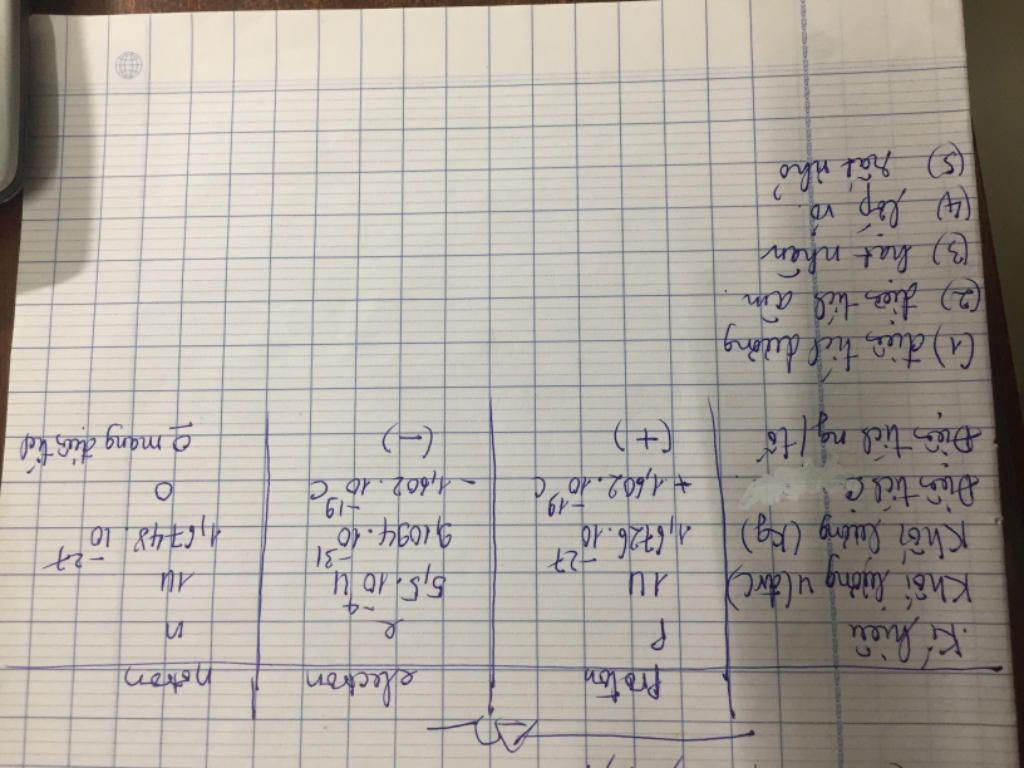 Proton electron notron
Kí hiệu P e n
Khối lượng u(đvC) 1u 5,5.10⁻⁴u 1u
Khối lượng (kg) 1,6726.10⁻²⁷ 9,1094.10⁻³¹ 1,6748.10⁻²⁷
Điện tích C +1,602.10⁻¹⁹C -1,602.10⁻¹⁹C 0
Điện tích ng/tố (+) (-) 0 mang điện tích
(1) điện tích dương
(2) điện tích âm
(3) hạt nhân
(4) lớp vỏ
(5) rất nhỏ